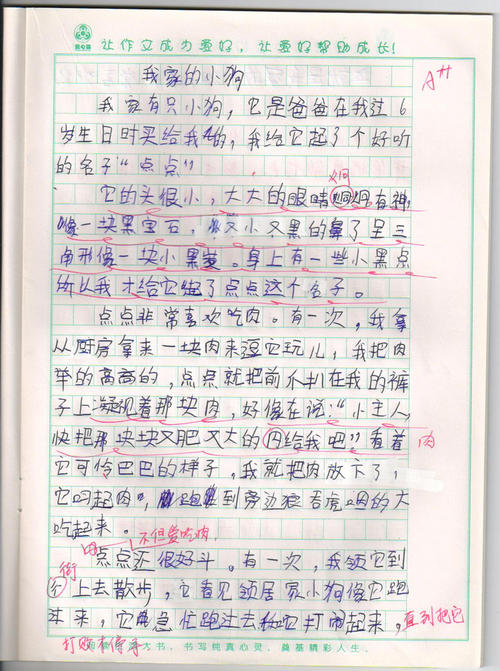 让作文成为爱好，让爱好帮助成长！
A++
我家的小狗
我家有只小狗，它是爸爸在我过6
岁生日时买给我的，我给它起了个好听
的名子“点点”
炯
它的头很小，大大的眼睛炯炯有神，
像一块黑宝石，又小又黑的鼻子呈三
角形像一块小黑炭。身上有一些小黑点
所以我才给它起了点点这个名子。
点点非常喜欢吃肉。有一次，我拿
从厨房拿来一块肉来逗它玩儿，我把肉
举的高高的，点点就把前爪扒在我的裤
子上凝视着那块肉，好像在说：“小主人，
快把那块块又肥又大的肉给我吧”看着
肉
它可怜巴巴的样子，我就把肉放下了，
它叼起肉，跑到旁边狼吞虎咽的大
吃起来。
不但爱吃肉
点点还很好斗。有一次，我领它到
街
上去散步，它看见领居家小狗像它跑
过来，它急忙跑过去和它打闹起来，直到把它
打败
大书，书写纯真心灵，奠基精彩人生。